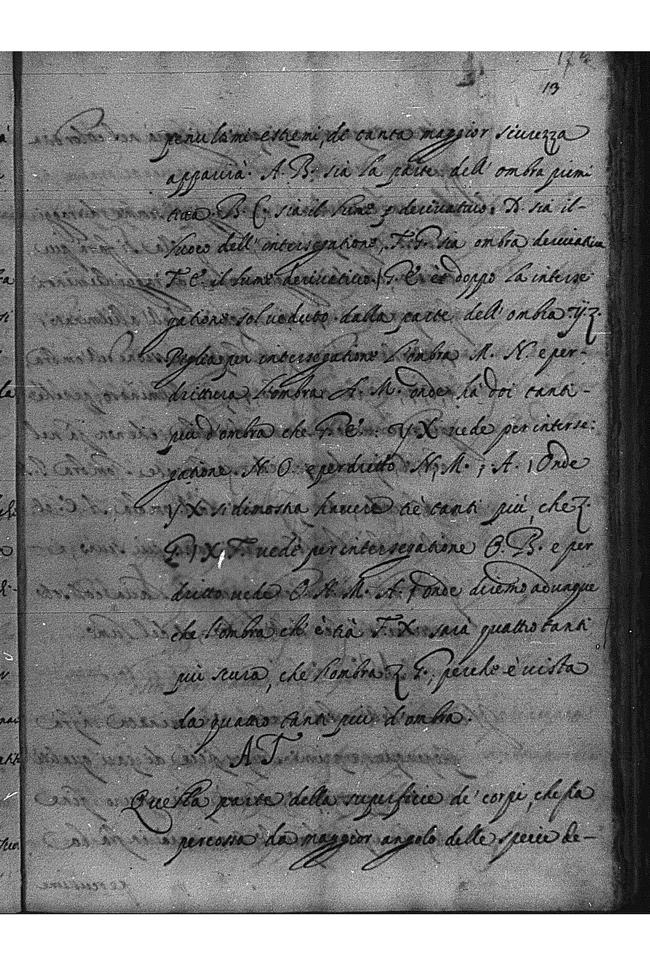 13
penulami estremi, di tanta maggior scurezza
apparirà. A. B. sia la parte dell' ombra primi
tiva. B. C. sia il lume p derivativo; D. sia il-
luoco dell' intersegatione, F. G. sia ombra derivativa
F. E. il lume derivativo. G. E. è doppo la interse
gatione sol veduto dalla parte dell' ombra y z.
Piglia per intersegatione l'ombra M. N. e per-
drittura l'ombra A. M. onde hà doi tanti-
più d'ombra che G. E.: y X vede per interse:
gatione. N. O. e per dritto, N; M.; A.; Onde
y X si dimostra havere tre tanti più, che z.
G; X. F. vede per intersegatione O. B. e per
dritto vede O. N. M. A.; onde diremo adunque
che l'ombra ch' è trà F. X. sarà quattro tanti
più scura, che l'ombra z G., perche è vista
da quattro tanti più d'ombra.
A T
Quella parte della superficie de' corpi, che fia
percossa da maggior angolo delle specie de-